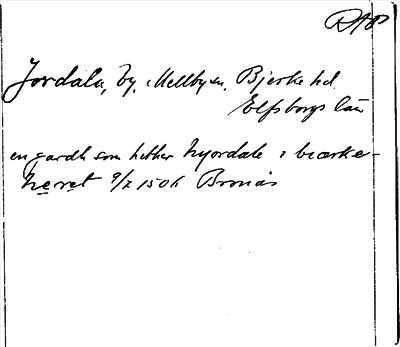 RAP
Jordala, by, i Mellby sn. Bjerke hd.
Elfsborgs län
en gardh som hether hyordale i biærke-
herret 9/7 1506 Bronäs